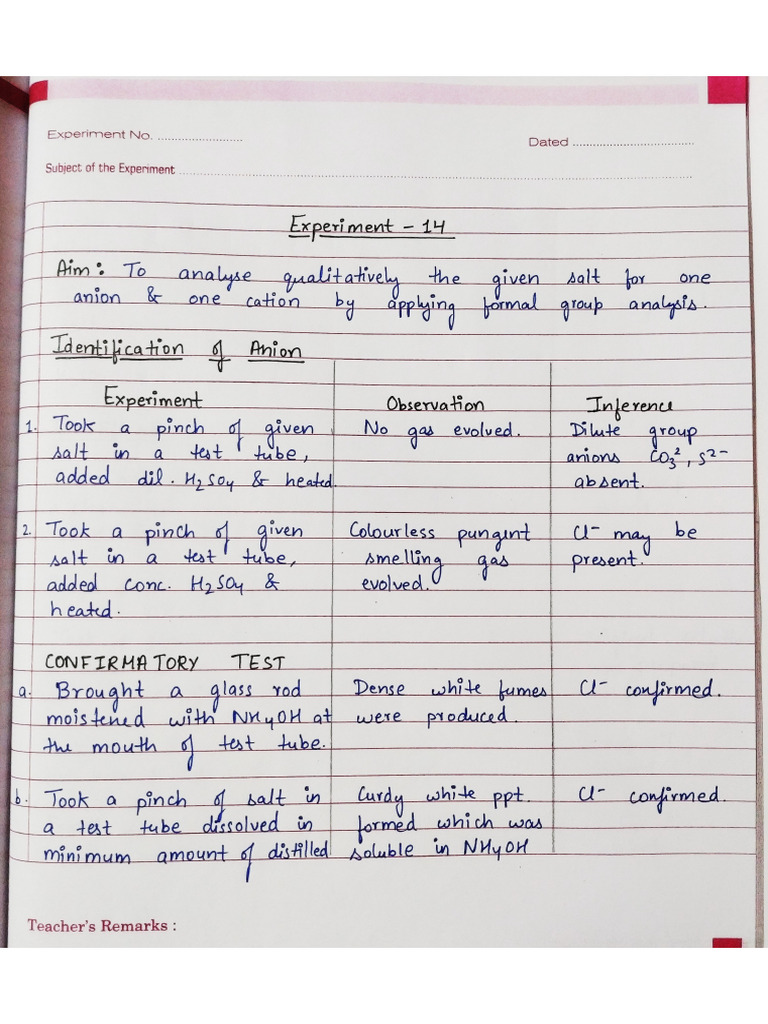 Experiment No. ..........................
Dated ..................................
Subject of the Experiment ..........................................................................
Experiment - 14
Aim : To analyse qualitatively the given salt for one
anion & one cation by applying formal group analysis.
Identification of Anion
Experiment Observation Inference
1. Took a pinch of given No gas evolved. Dilute group
salt in a test tube, anions CO₃², S²⁻
added dil. H₂SO₄ & heated. absent.
2. Took a pinch of given Colourless pungent Cl⁻ may be
salt in a test tube, smelling gas present.
added conc. H₂SO₄ & evolved.
heated.
CONFIRMATORY TEST
a. Brought a glass rod Dense white fumes Cl⁻ confirmed.
moistened with NH₄OH at were produced.
the mouth of test tube.
b. Took a pinch of salt in Curdy white ppt. Cl⁻ confirmed.
a test tube dissolved in formed which was
minimum amount of distilled soluble in NH₄OH
Teacher's Remarks :